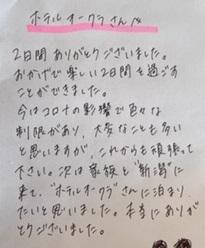 ホテルオークラさんへ
2日間ありがとうございました。
おかげで楽しい2日間を過ごす
ことができました。
今はコロナの影響で色々な
制限があり、大変なことも多い
と思いますが、これからも頑張って
下さい。次は家族と"新潟"に
来て、"ホテルオークラ"さんに泊まり
たいと思いました。本当にありが
とうございました。